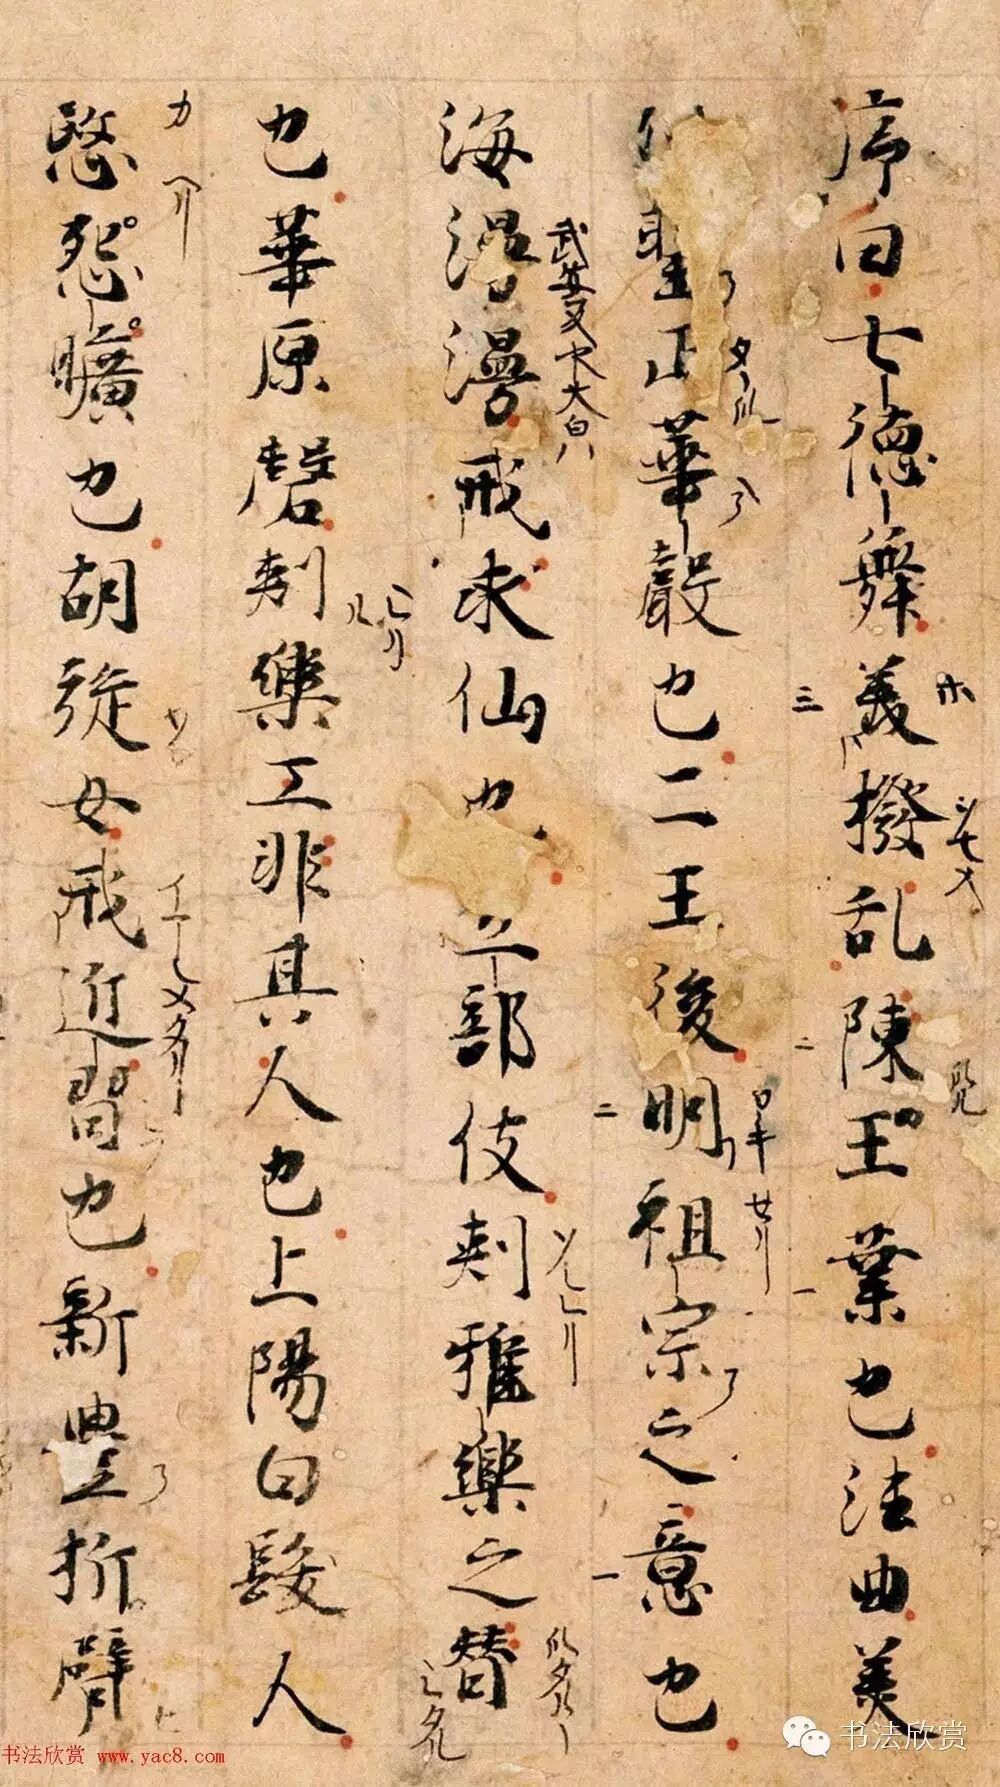 序曰七德舞義撥乱陳王業也法曲美
列聖正華聲也二王後明祖宗之意也
海漫漫戒求仙也立部伎刺雅樂之替
也華原磬刺樂工非其人也上陽白髮人
愍怨曠也胡旋女戒近習也新豐折臂
书法欣赏 www.yac8.com
书法欣赏